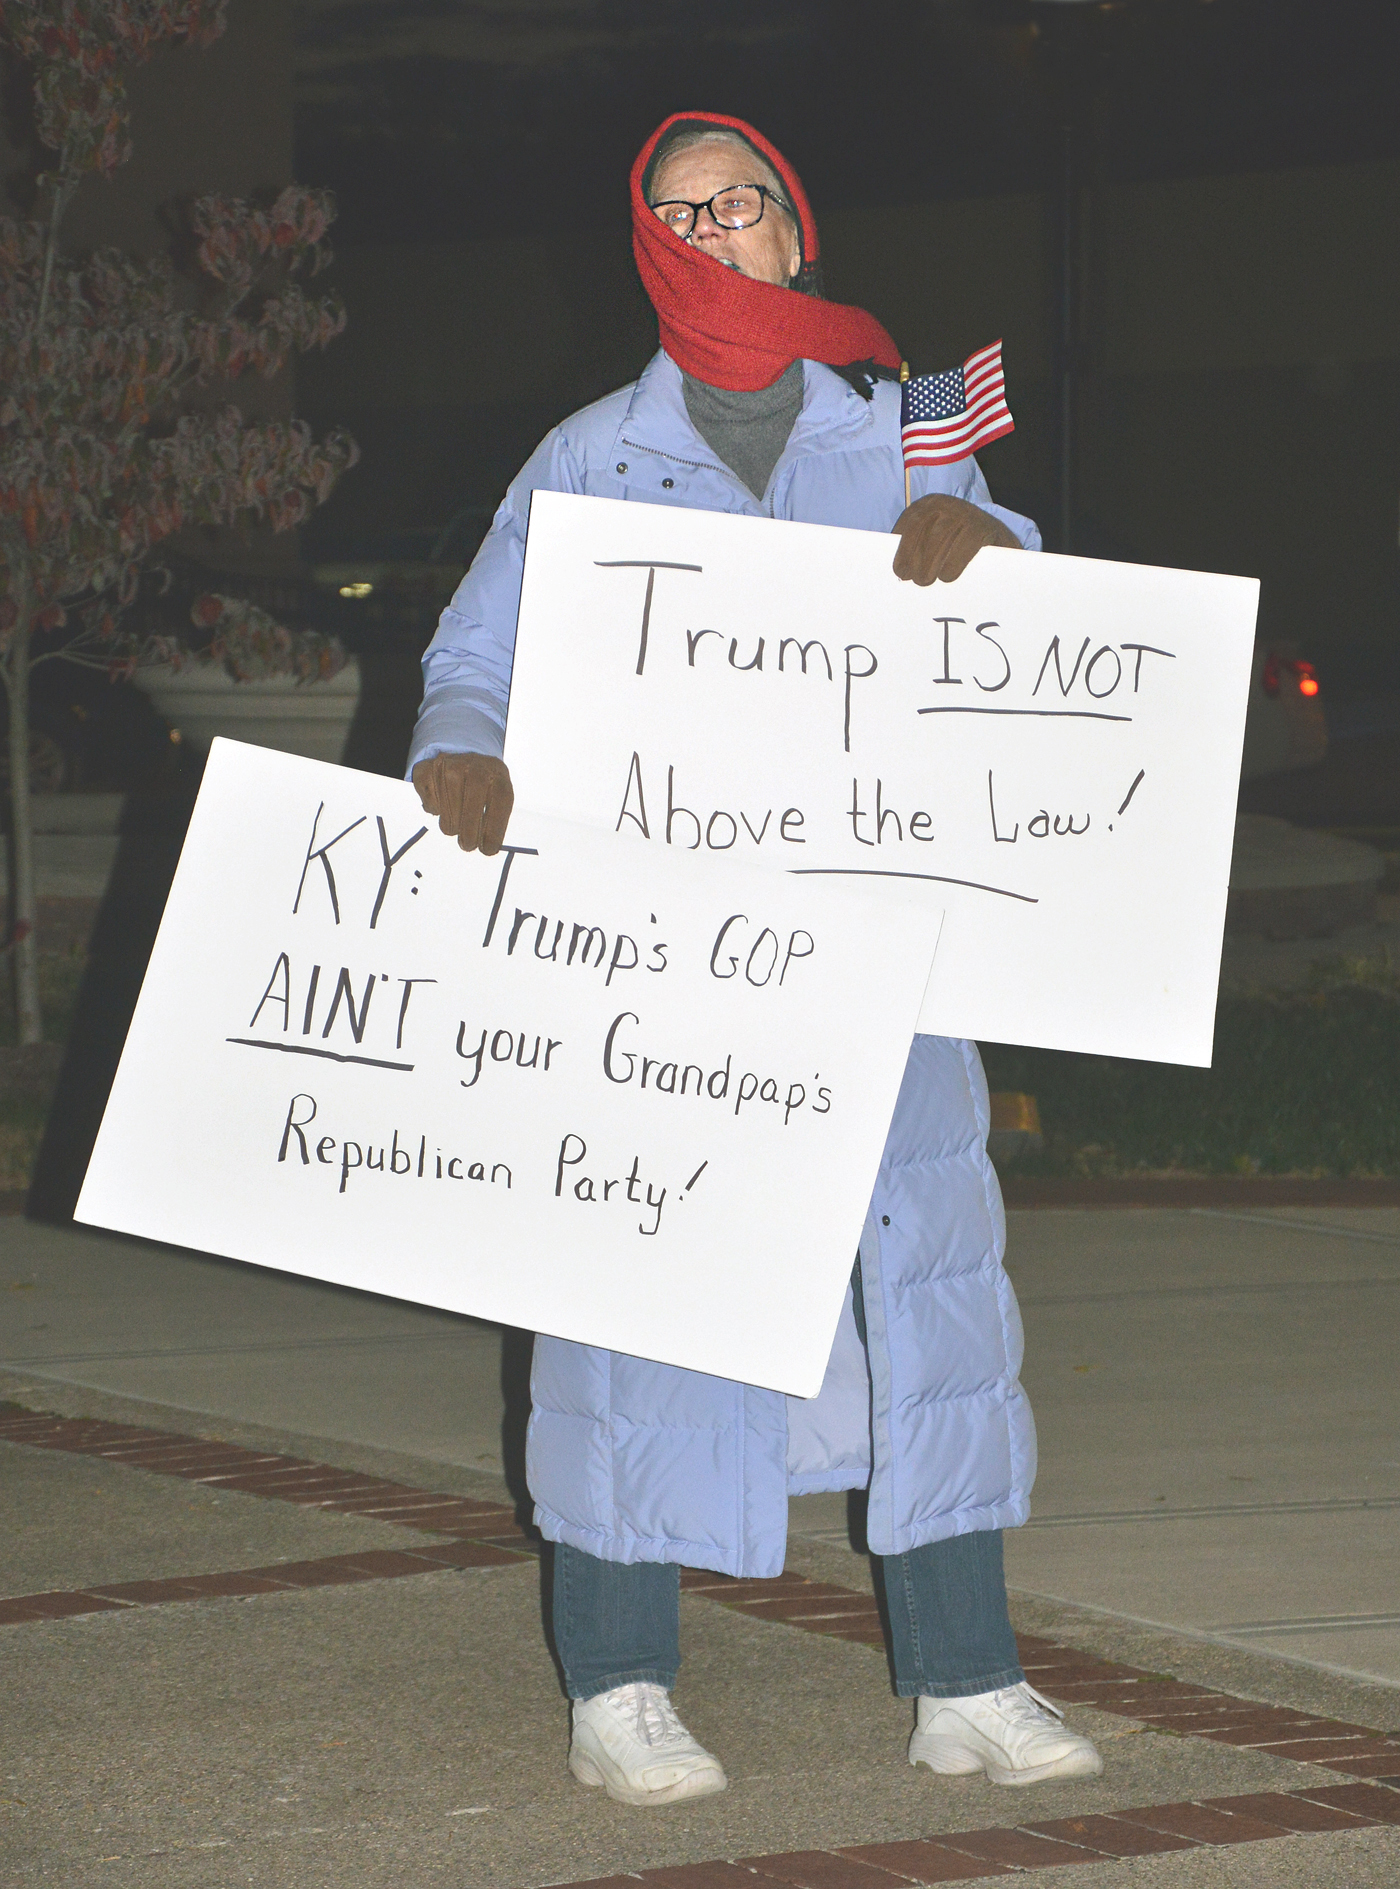 Trump IS NOT
Above the Law!
KY: Trump's GOP
AIN'T your Grandpap's
Republican Party!